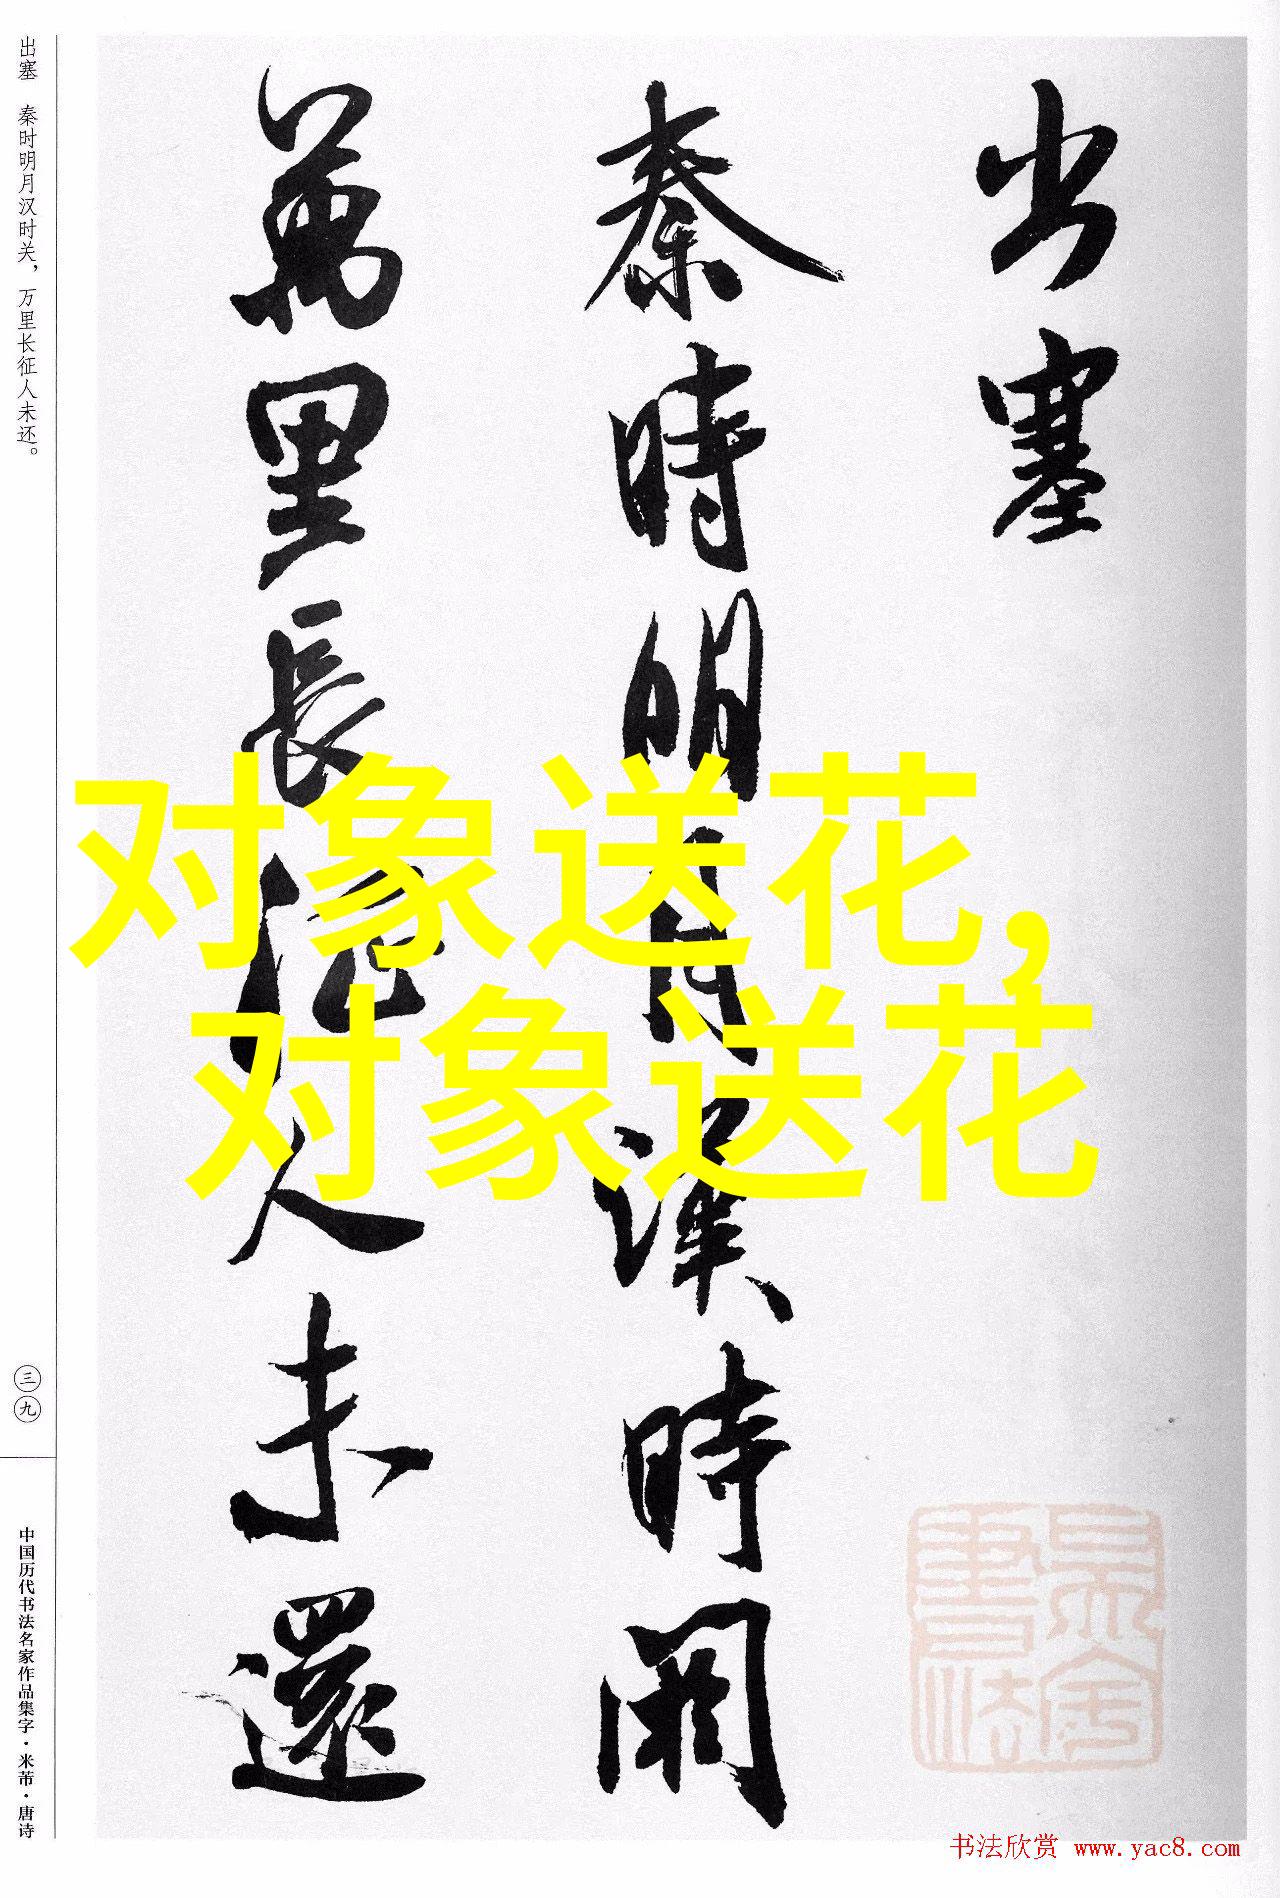 出塞
秦時明月漢時関
萬里長征人未還
对象送花，
对象送花
出塞 秦时明月汉时关，万里长征人未还。
三九
中国历代书法名家作品集字·米芾·唐诗
书法欣赏 www.yac8.com